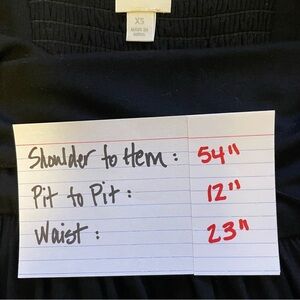 XS
Shoulder to Hem: 54"
Pit to Pit: 12"
Waist: 23"